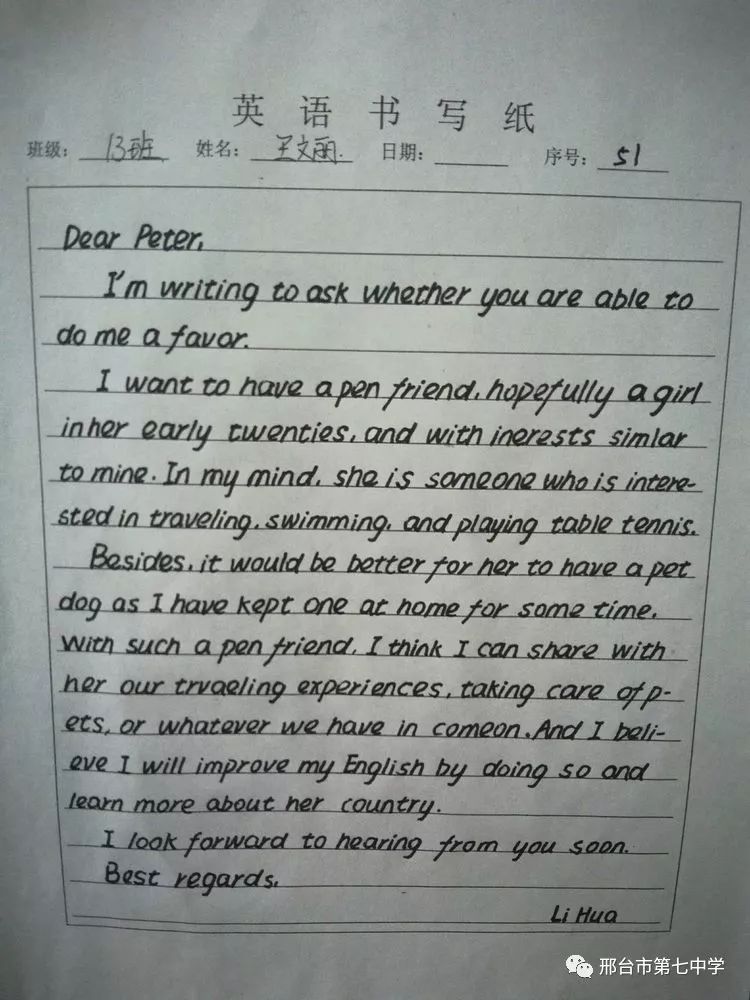 英语书写纸
班级: 13班 姓名: 王文丽. 日期: 序号: 51
Dear Peter,
I'm writing to ask whether you are able to
do me a favor.
I want to have a pen friend, hopefully a girl
in her early twenties, and with inerests simlar
to mine. In my mind, she is someone who is intere-
sted in traveling, swimming, and playing table tennis.
Besides, it would be better for her to have a pet
dog as I have kept one at home for some time.
With such a pen friend, I think I can share with
her our trvaeling experiences, taking care of p-
ets, or whatever we have in comeon. And I beli-
eve I will improve my English by doing so and
learn more about her country.
I look forward to hearing from you soon.
Best regards,
Li Hua
邢台市第七中学